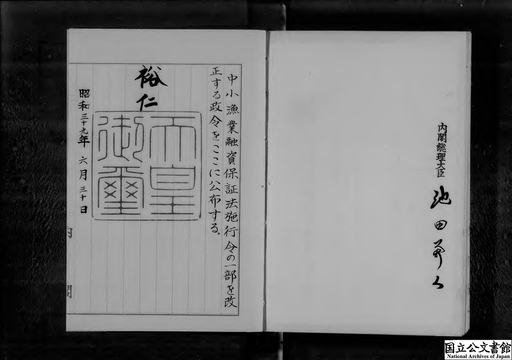 中小漁業融資保証法施行令の一部を改
正する政令をここに公布する。
裕仁
天皇
御璽
昭和三十九年六月三十日
内閣
内閣総理大臣
池田勇人
国立公文書館
National Archives of Japan